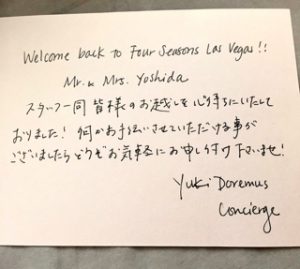 Welcome back to Four Seasons Las Vegas!!
Mr. & Mrs. Yoshida
スタッフ一同 皆様のお越しを心待ちにいたして
おりました! 何かお手伝いさせていただける事が
ございましたらどうぞお気軽にお申し付け下さいませ!
Yuki Doremus
Concierge